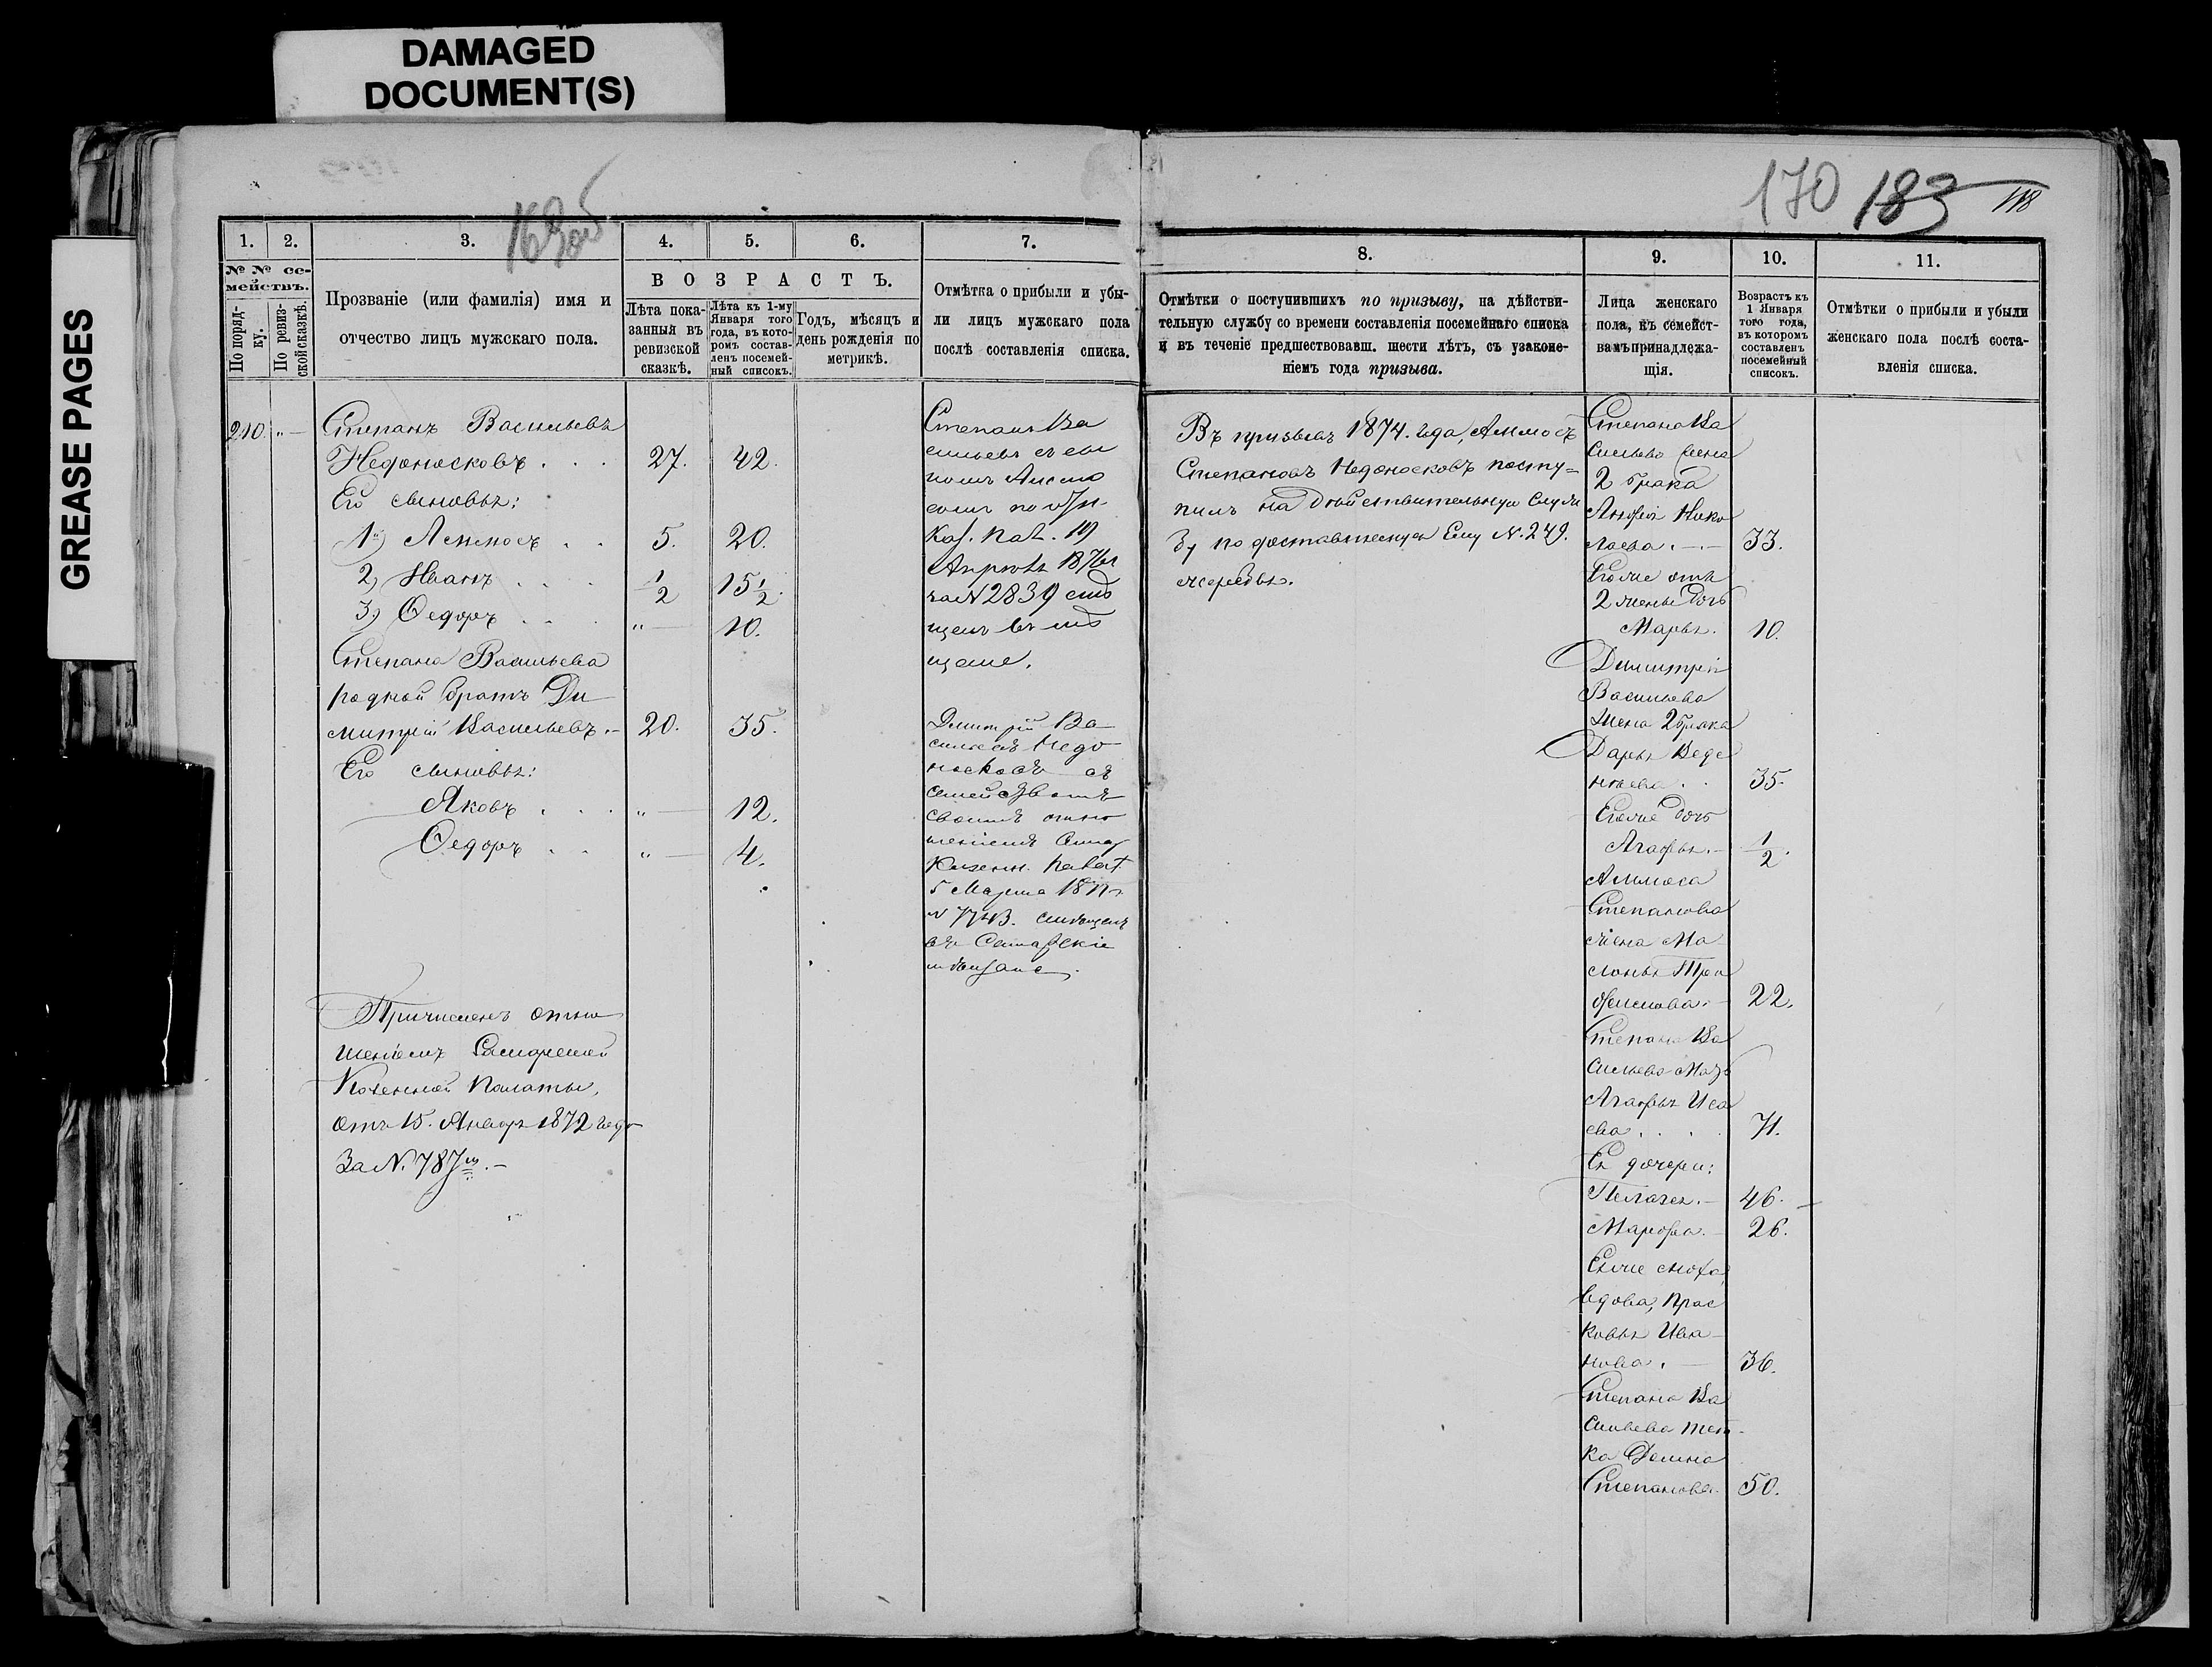 DAMAGED
DOCUMENT(S)
GREASE PAGES
169об
170 183 118
1. 2. 3. 4. 5. 6. 7.
№ № се-
мействъ.
По поряд-
ку.
По ревиз-
ской сказкѣ.
Прозваніе (или фамилія) имя и
отчество лицъ мужскаго пола.
ВОЗРАСТЪ.
Лѣта пока-
занный въ
ревизской
сказкѣ.
Лѣта къ 1-му
Января того
года, въ кото-
ромъ состав-
ленъ посемей-
ный списокъ.
Годъ, мѣсяцъ и
день рожденія по
метрикѣ.
Отмѣтка о прибыли и убы-
ли лицъ мужскаго пола
послѣ составленія списка.
210. „—
Степанъ Васильевъ
Недоносковъ . . . 27. 42.
Его сыновья:
1) Аммосъ . . 5. 20.
2) Иванъ . . . 1/2 15 1/2.
3) Ѳедоръ . . . „— 10.
Степана Васильева
родной братъ Ди
митрій Васильевъ.— 20. 35.
Его сыновья:
Яковъ . . . „— 12.
Ѳедоръ . . „— 4.
Причисленъ отно
шеніемъ Самарской
Казенной Палаты,
отъ 15. Января 1872 года
За № 787м.—
Степанъ Ва
сильевъ съ сы
номъ
Каз. Пал. 19
Апрѣля
за № 2839
щенъ въ
щане.
Димитрій Ва
сильевъ Недо
носковъ съ
семействомъ
своимъ отно
шеніемъ Самар
Казенн. Палат
5 Марта
№ 7743.
въ Самарскіе
8. 9. 10. 11.
Отмѣтки о поступившихъ по призыву, на дѣйстви-
тельную службу со времени составленія посемейнаго списка
и въ теченіе предшествовавш. шести лѣтъ, съ узаконе-
ніемъ года призыва.
Лица женскаго
пола, къ семейст-
вамъ принадлежа-
щія.
Возрастъ къ
1 Января
того года,
въ которомъ
составленъ
посемейный
списокъ.
Отмѣтки о прибыли и убыли
женскаго пола послѣ соста-
вленія списка.
Въ призывъ 1874. года, Аммосъ
Степановъ Недоносковъ посту=
пилъ на дѣйствительную служ
бу по доставшемуся Ему № 249.
жеребью.
Степана Ва
сильева жена
2 брака
Анфея Нико
лаева.—.— 33.
Егоже отъ
2 жены дочь
Марья. 10.
Димитрія
Васильева
Жена 2 брака
Дарья Веде
нѣева . . 35.
Егоже дочь
Агафья.— 1/2.
Аммоса
Степанова
жена Ма
ланья Тро
фимова.— 22.
Степана Ва
сильева Мать
Агафья Иса
ева . . . . 71.
Ея дочери:
Пелагея.— 46.—
Марѳа.— 26.
Еяже сноха,
вдова, Прас
ковья Ива—
нова.— 36.
Степана Ва
сильева тет-
ка Домна
Степанова. 50.